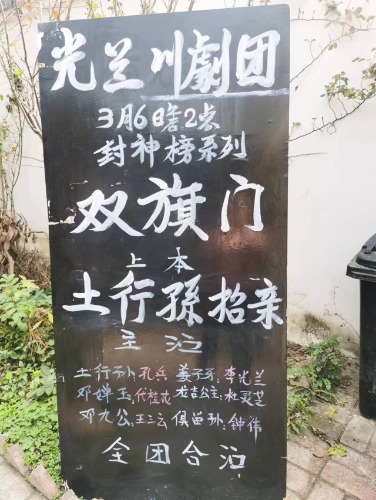 光兰川劇团
3月6日暨2点
封神榜系列
双旗门
上本
土行孫招亲
主演
土行孙:孔兵 姜子牙:李光兰
邓婵玉:代桂龙 龙吉公主:杜灵芝
邓九公:王三云 俱苗孙:钟伟
全团合演